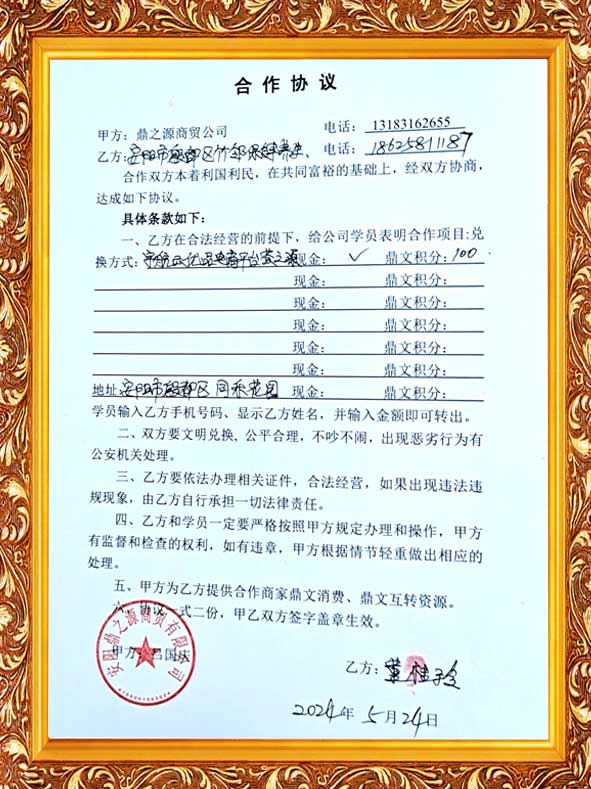 合作协议
甲方：鼎之源商贸公司 电话：13183162655
乙方：安阳市殷都区竹邻保健养生、 电话：18625811187
合作双方本着利国利民，在共同富裕的基础上，经双方协商，
达成如下协议。
具体条款如下：
一、乙方在合法经营的前提下，给公司学员表明合作项目:兑
换方式: 现金：✓ 鼎文积分：100
现金： 鼎文积分：
现金： 鼎文积分：
现金： 鼎文积分：
现金： 鼎文积分：
现金： 鼎文积分：
地址:安阳市殷都区同乐花园 现金： 鼎文积分：
学员输入乙方手机号码、显示乙方姓名，并输入金额即可转出。
二、双方要文明兑换, 公平合理，不吵不闹，出现恶劣行为有
公安机关处理。
三、乙方要依法办理相关证件，合法经营，如果出现违法违
规现象，由乙方自行承担一切法律责任。
四、乙方和学员一定要严格按照甲方规定办理和操作，甲方
有监督和检查的权利，如有违章，甲方根据情节轻重做出相应的
处理。
五、甲方为乙方提供合作商家鼎文消费、鼎文互转资源。
六、协议一式二份，甲乙双方签字盖章生效。
安阳鼎之源商贸有限公司
甲方：吕国庆
乙方：董桂玲
2024年5月24日